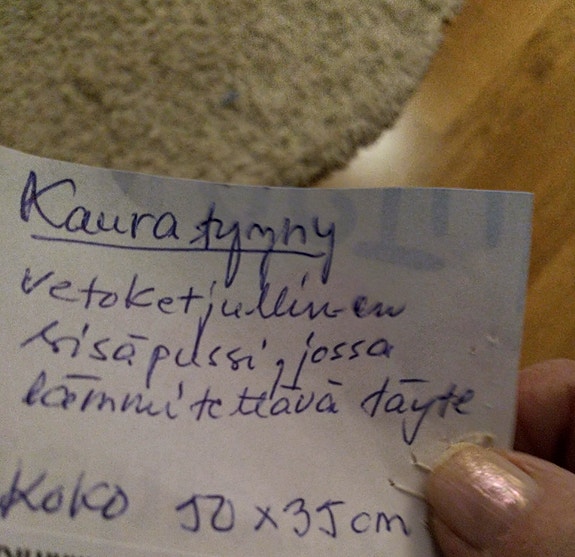 Kauratyyny
vetoketjullinen
sisäpussi, jossa
lämmitettävä täyte
Koko 50 x 35 cm